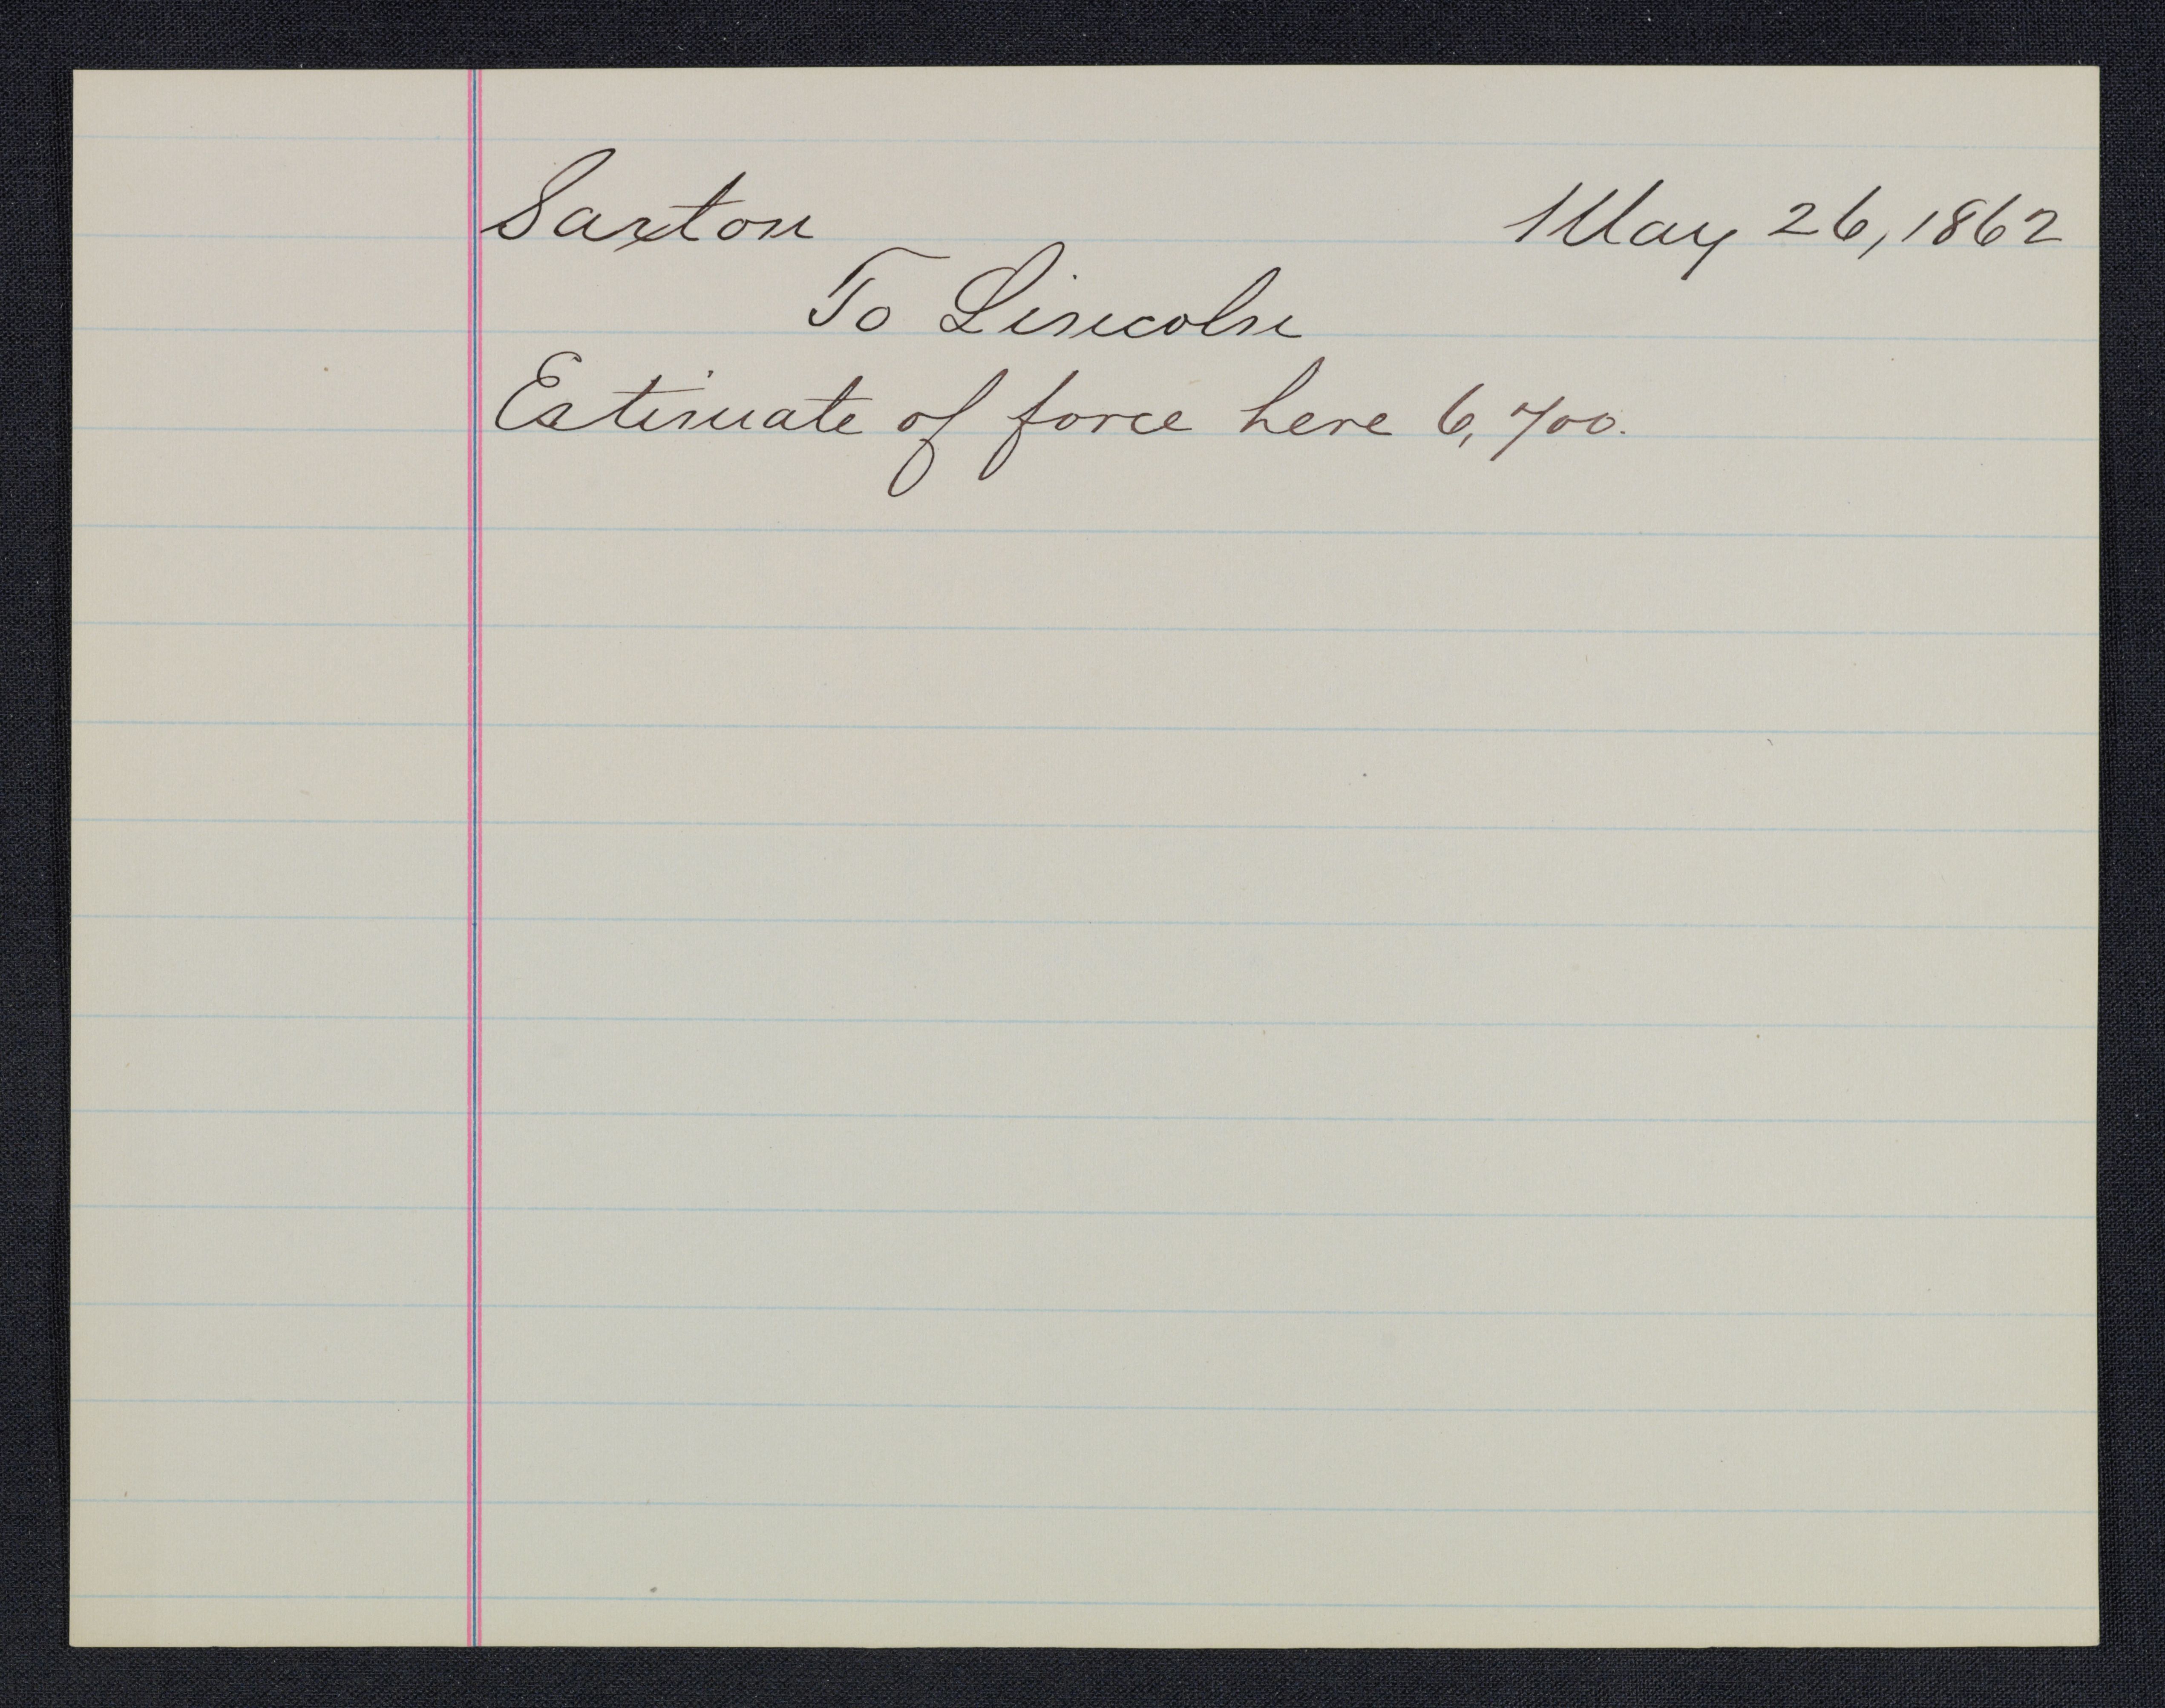 Saxton May 26, 1862
To Lincoln
Estimate of force here 6,700.